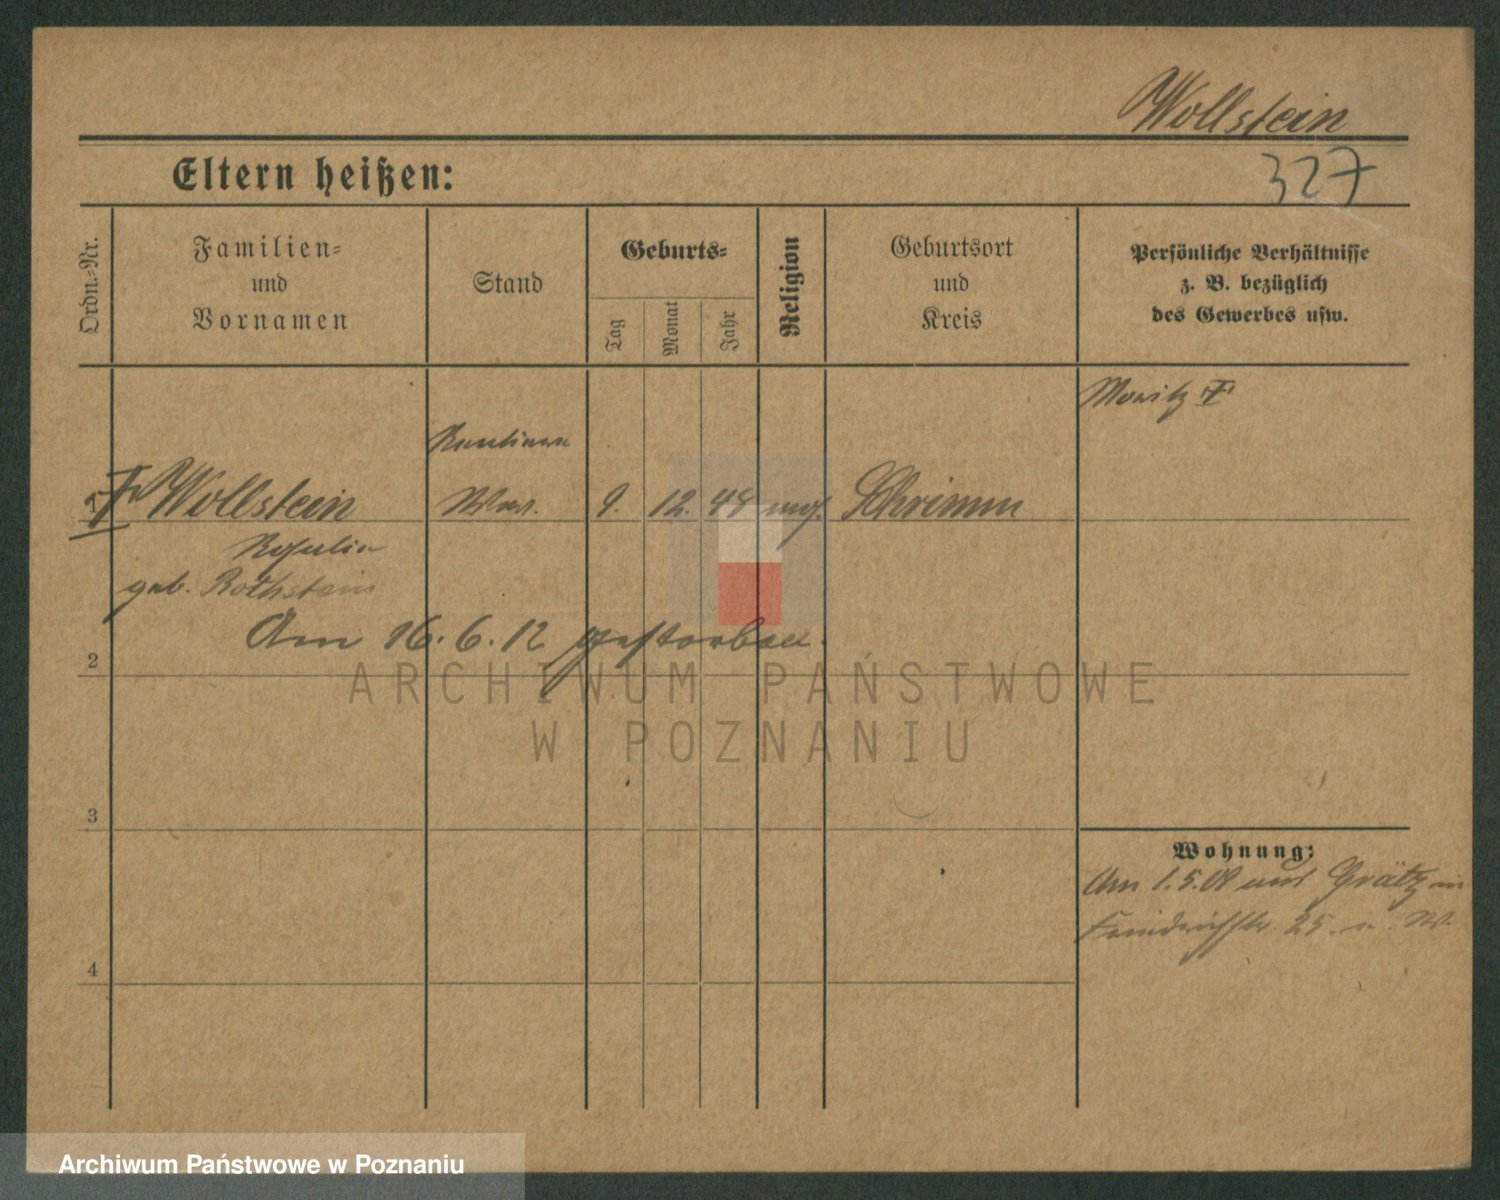 Wollstein
Eltern heißen:
327
Ordn.-Nr.
Familien-
und
Vornamen
Stand
Geburts-
Tag
Monat
Jahr
Religion
Geburtsort
und
Kreis
Persönliche Verhältnisse
z. B. bezüglich
des Gewerbes usw.
Moritz †
Rentiere
1 † Wollstein Ww. 9. 12. 48 Schrimm
Rosalie
geb. Rothstein
Am 16.6.12 gestorben.
2
ARCHIWUM PAŃSTWOWE
W POZNANIU
3
Wohnung:
Am 1.5.09 aus Grätz
Friedrichstr. 25.
4
Archiwum Państwowe w Poznaniu